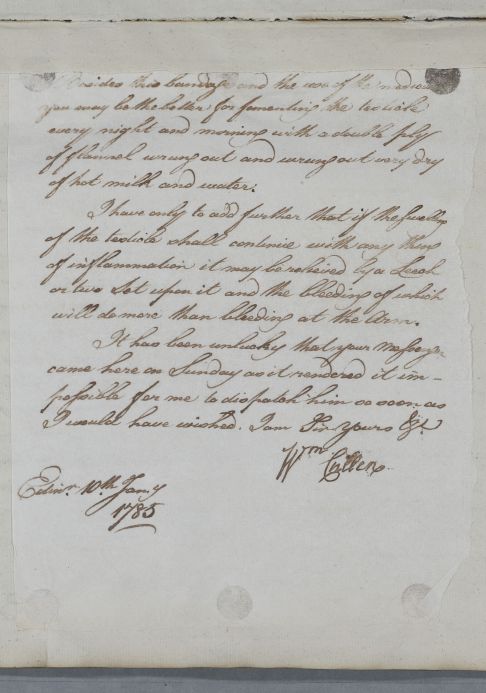 Besides this bandage and the use of the medicine
you may be the better for fomenting the testicle
every night and morning with a double ply
of flannel wrung out and wrung out very dry
of hot milk and water.
I have only to add further that if the swelling
of the testicle shall continue with any thing
of inflammation it may be relieved by a Leech
or two Set upon it and the bleeding of which
will do more than bleeding at the Arm.
It has been unlucky that your Messenger
came here on Sunday as it rendered it im-
possible for me to dispatch him so soon as
I would have wished. I am Sir yours &c.
Wm Cullen
Edinr. 10th Jany
1785